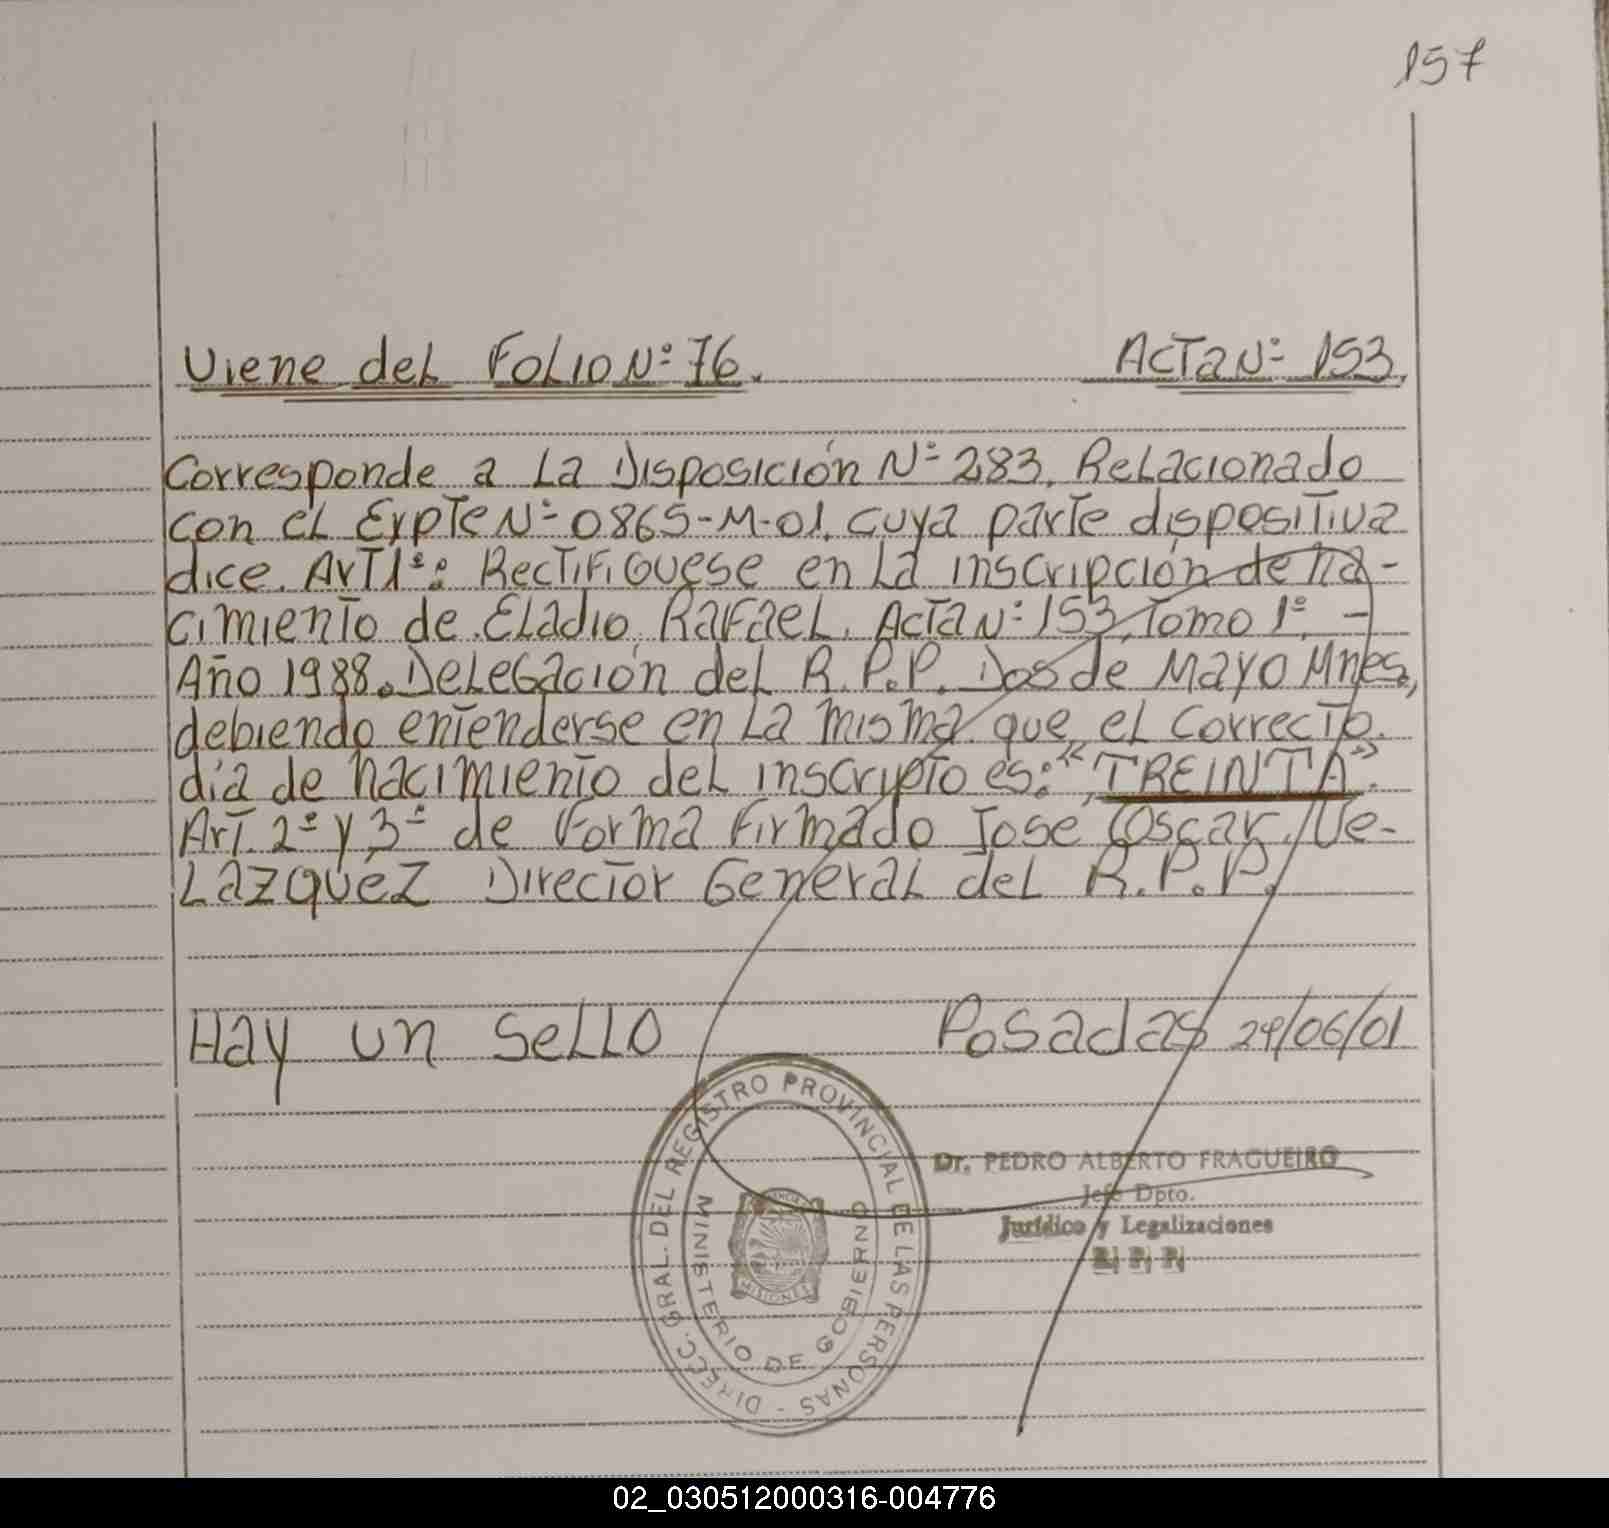 157
Viene del Folio Nº 76. Acta Nº 153.
Corresponde a La Disposición Nº 283. Relacionado
con el Expte Nº 0865-M-01. cuya parte dispositiva
dice. Art 1º: Rectifiquese en La inscripción de na-
cimiento de Eladio Rafael. Acta Nº 153, Tomo 1º. -
Año 1988. Delegación del R.P.P. Dos de Mayo Mnes,
debiendo entenderse en La misma que el correcto
día de nacimiento del inscrypto es: "TREINTA".
Art. 2º y 3º de Forma Firmado Jose Oscar Ve-
Lazquez Director General del R.P.P.
Hay un sello Posadas 29/06/01
DIRECC. GRAL. DEL REGISTRO PROVINCIAL DE LAS PERSONAS -
MINISTERIO DE GOBIERNO
MISIONES
Dr. PEDRO ALBERTO FRAGUEIRO
Jefe Dpto.
Jurídico y Legalizaciones
R. P. P.
02_030512000316-004776